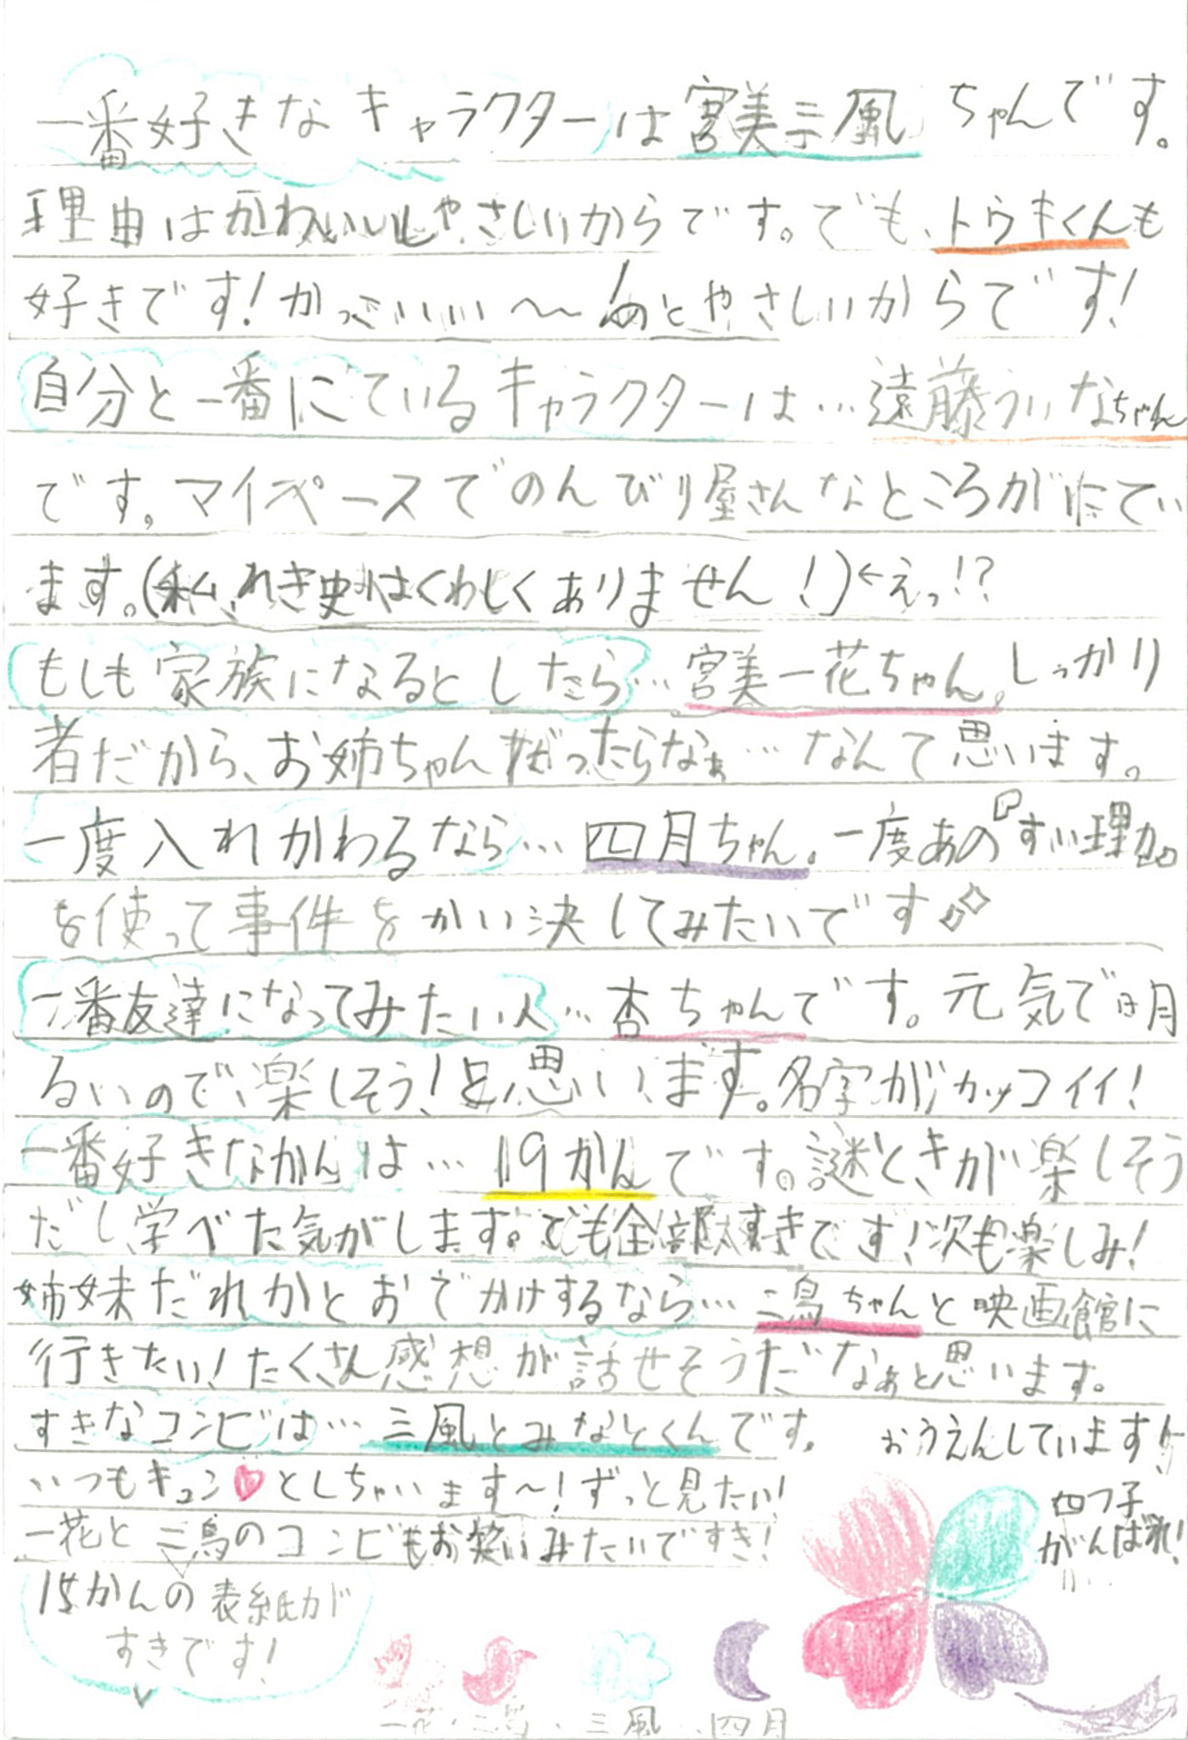 一番好きなキャラクターは宮美三風ちゃんです。
理由はかわいいしやさしいからです。でも、トウキくんも
好きです!かっこいいい〜〜!あとやさしいからです!
自分と一番にているキャラクターは…遠藤ういなちゃん
です。マイペースでのんびり屋さんなところがにてい
ます。(私、れき史はくわしくありません!)←えっ!?
もしも家族になるとしたら…宮美一花ちゃん。しっかり
者だから、お姉ちゃんだったらなぁ…なんて思います。
一度入れかわるなら…四月ちゃん。一度あの『すい理力』
を使って事件をかい決してみたいです
一番友達になってみたい人…杏ちゃんです。元気で明
るいので、楽しそう!と思います。名字がカッコイイ!
一番好きなかんは…19かんです。謎ときが楽しそう
だし、学べた気がします。でも全部大すきです!次も楽しみ!
姉妹だれかとおでかけするなら…二鳥ちゃんと映画館に
行きたい!たくさん感想が話せそうだなぁと思います。
すきなコンビは…三風とみなとくんです。
いつもキュン♥としちゃいます〜!ずっと見たい!
一花と二鳥のコンビもお笑いみたいですき!
おうえんしています!
四つ子
がんばれ!
15かんの表紙が
すきです!
一花・二鳥・三風・四月